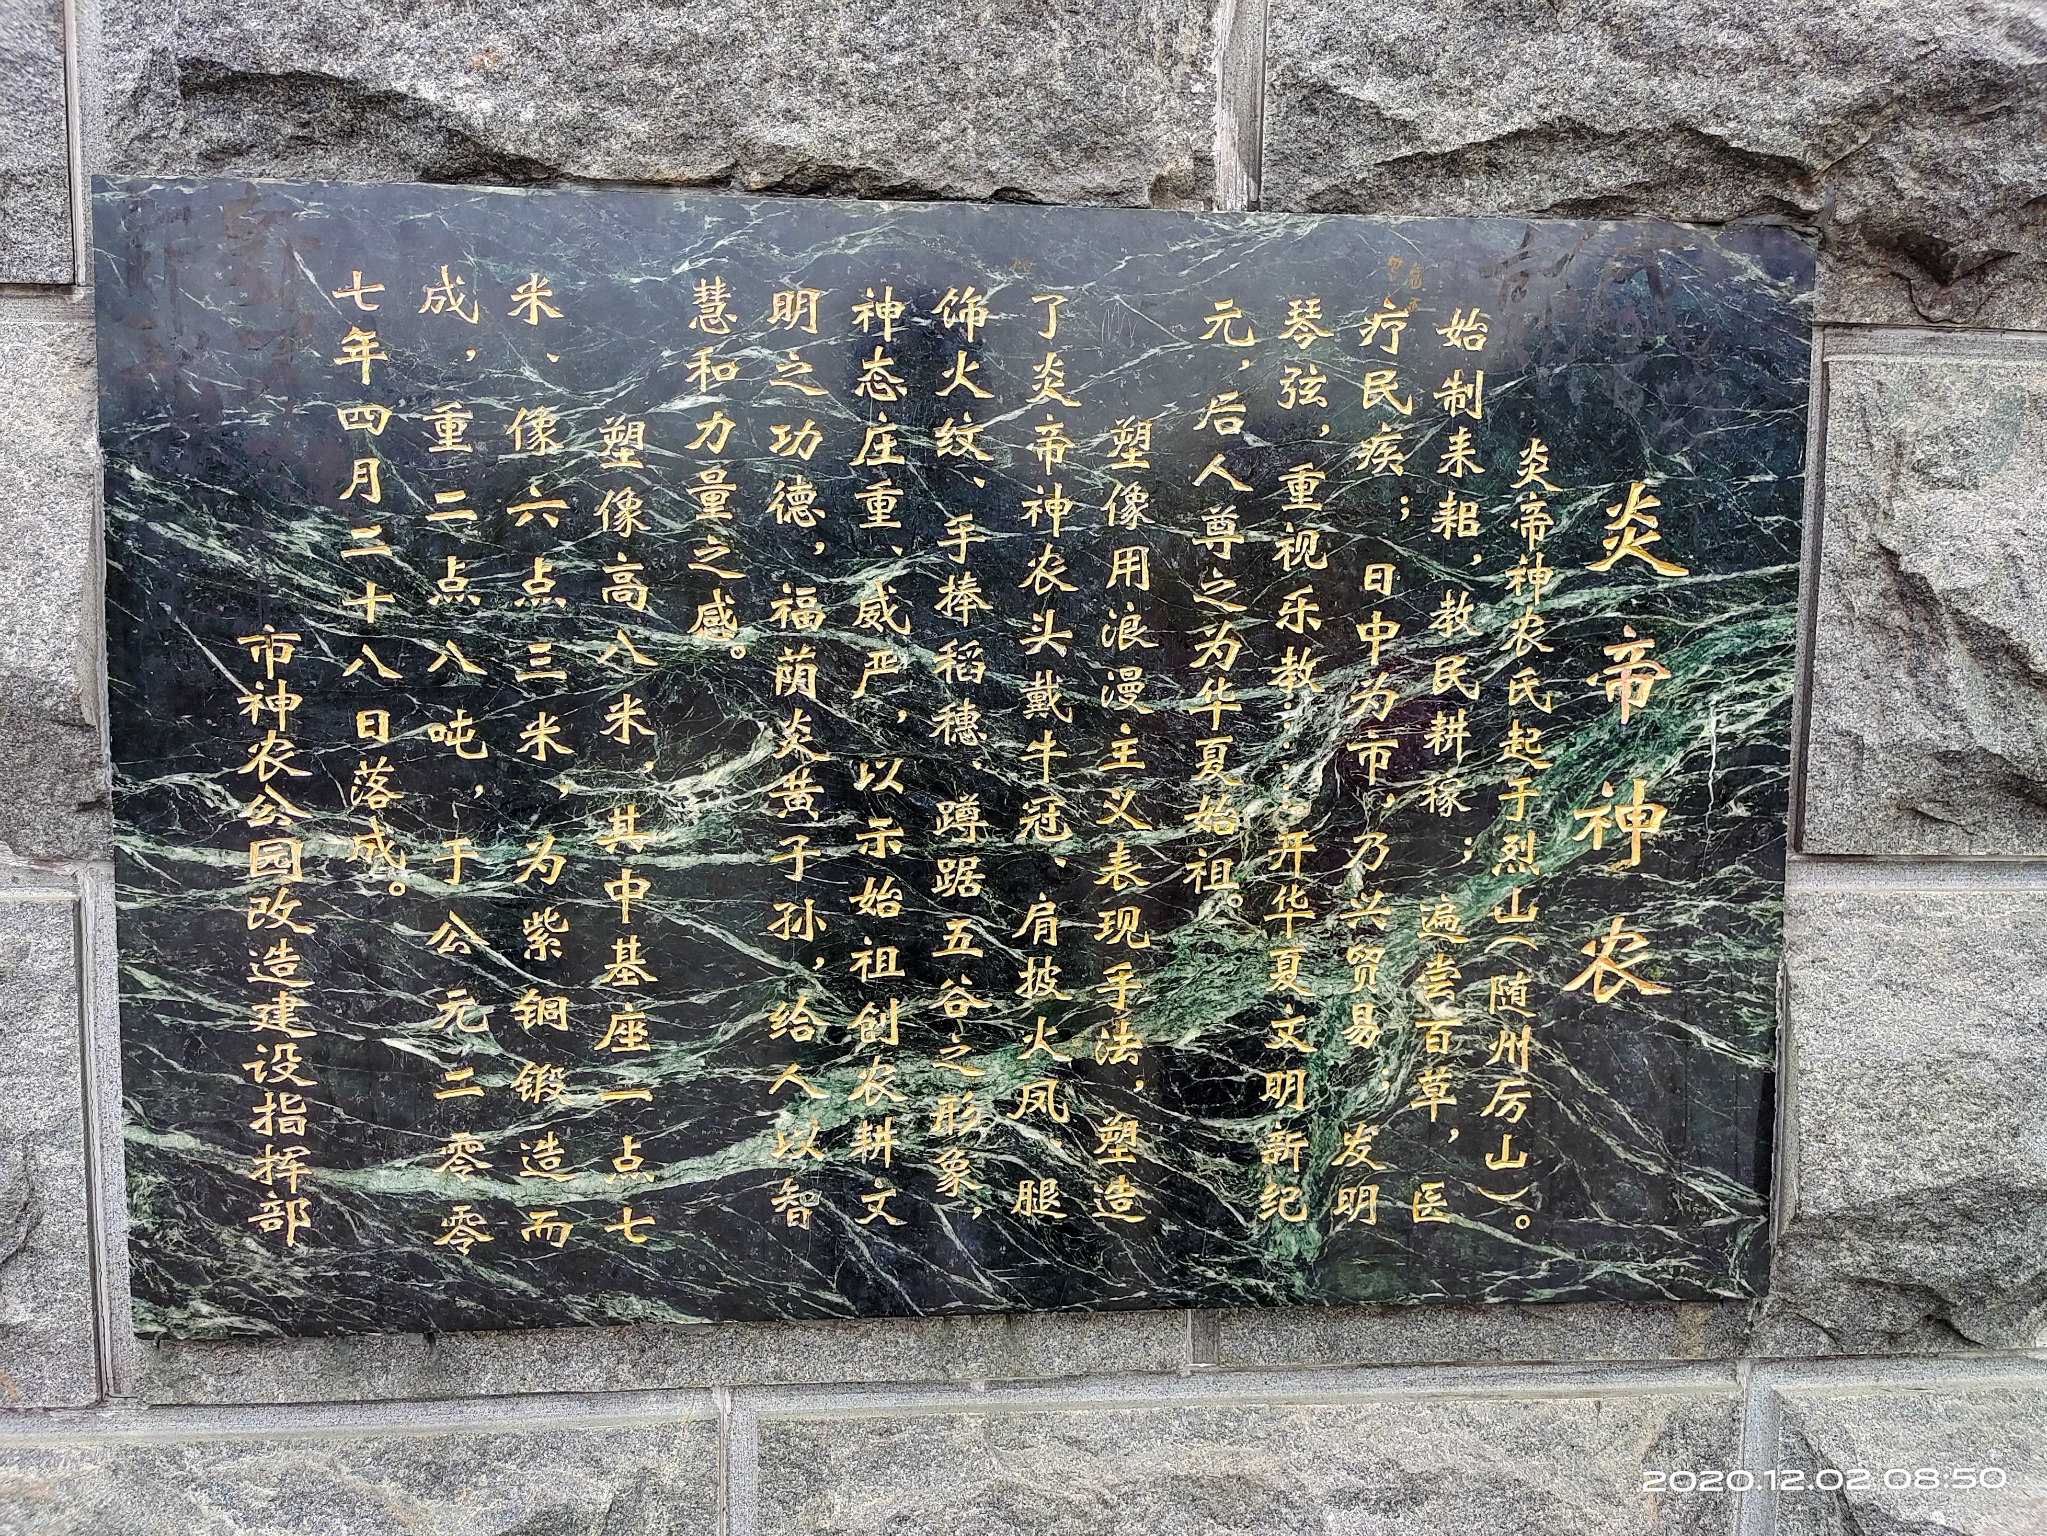 炎帝神农
炎帝神农氏起于烈山（随州厉山）。
始制耒耜，教民耕稼；遍尝百草，医
疗民疾；日中为市，乃兴贸易；发明
琴弦，重视乐教……开华夏文明新纪
元，后人尊之为华夏始祖。
塑像用浪漫主义表现手法，塑造
了炎帝神农头戴牛冠、肩披火凤、腿
饰火纹、手捧稻穗、蹲踞五谷之形象，
神态庄重、威严，以示始祖创农耕文
明之功德，福荫炎黄子孙，给人以智
慧和力量之感。
塑像高八米，其中基座一点七
米、像六点三米，为紫铜锻造而
成，重二点八吨，于公元二零零
七年四月二十八日落成。
市神农公园改造建设指挥部
2020.12.02 08:50